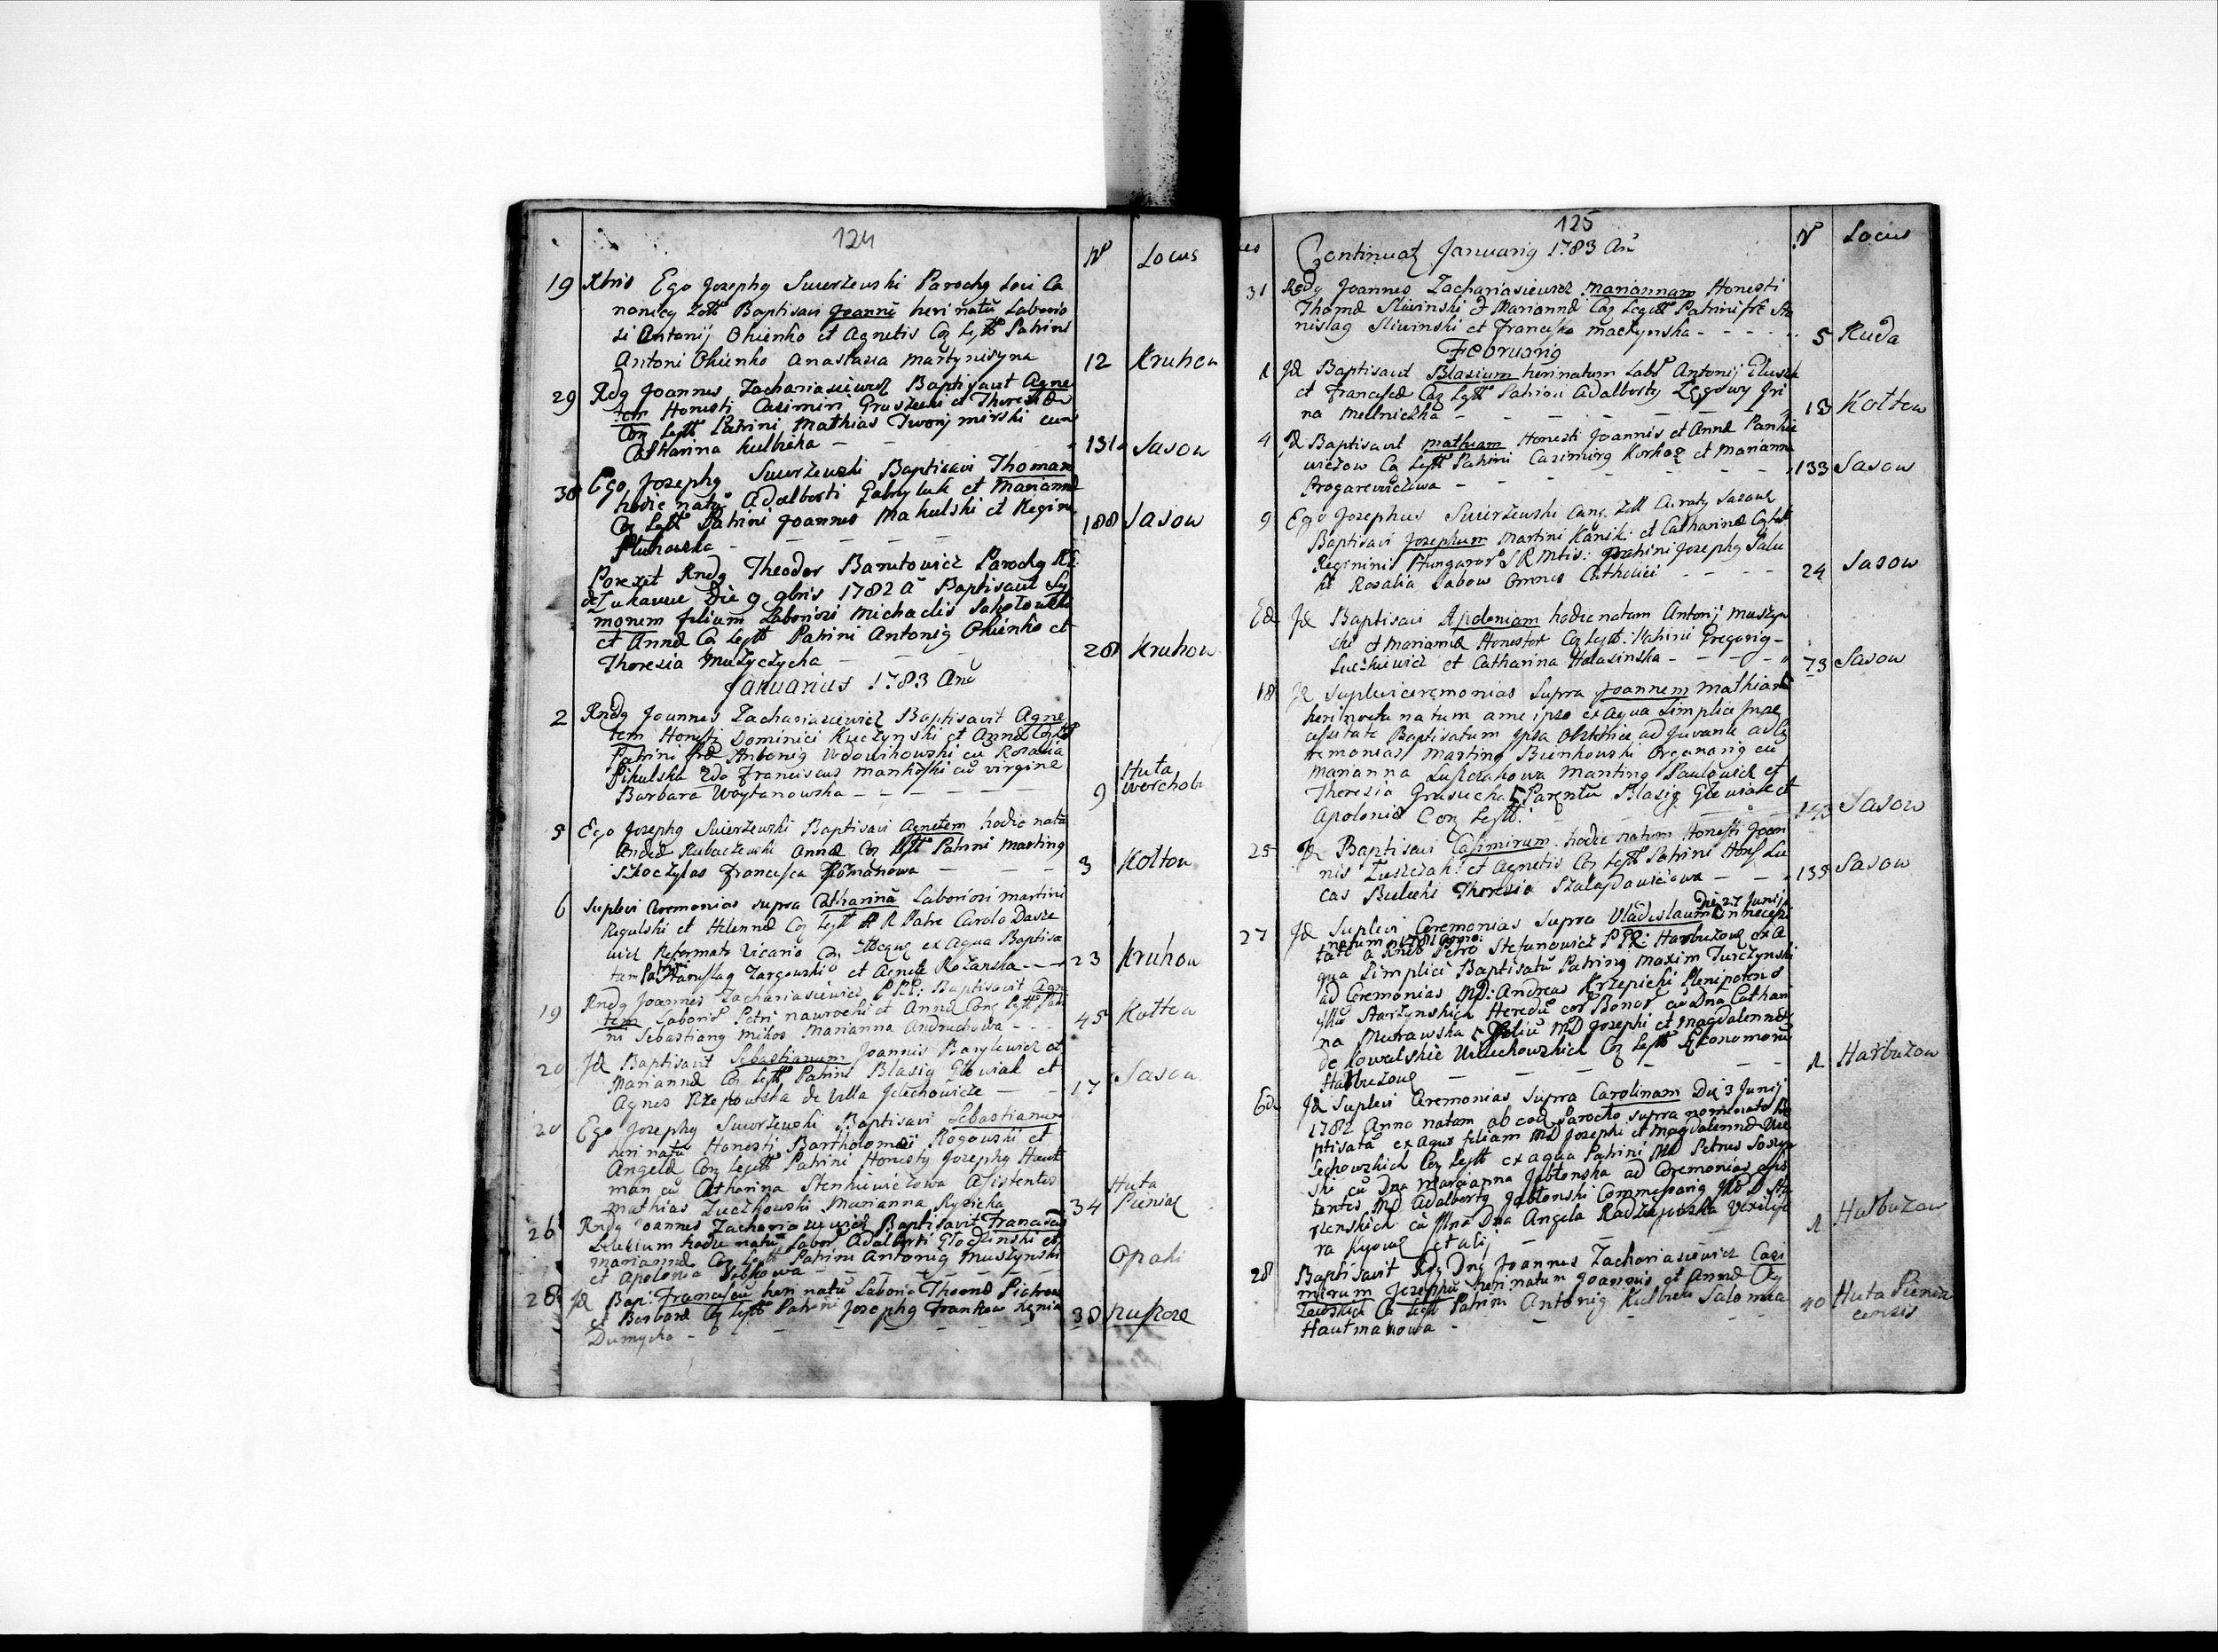 124
Nº Locus
19 Xbris Ego Josephg Swierżewski Parochg Loci Ca
nonicg Baptisavi Joannē heri natū Laborio
si Antonij Okienko et Agnetis Cog Legtt Patrini
Antoni Okienko Anastasia Martynisyna 12 Kruhow
29 Rndg Joannes Zachariasiewicz Baptisavit Agne
tem Honesti Casimiri Gruszecki et Theresiæ
Cog Legtt Patrini Mathias Tworymirski cum
Catharina Kulbicka 131 Sasow
30 Ego Josephg Swierżewski Baptisavi Thomam
hodie natū Adalberti Gabryluk et Mariannæ
Cog Legtt Patrini Joannes Makulski et Regina
188 Sasow
Porexit Rndg Theodor Banutowicz Parochg
de Lukawiec Die 9 9bris 1782 A Baptisavit Sy
monem filium Laboriosi Michaelis Sakołowski
et Annæ Cog Legtt Patrini Antonig Okienko et
Theresia Mużyczycha 28 Kruhow
Januarius 1783 An
2 Rndg Joannes Zachariasiewicz Baptisavit Agne
tem Honesti Dominici Kuczynski et Annæ Cog
Patrini Antonig Wdowikowski cū Rosalia
Pikulska 2do Franciscus Mankoski cū virgine
Barbara Woytanowska 9 Huta werchob
5 Ego Josephg Swierżewski Baptisavi Agnetem hodie natā
Andreæ Annæ Cog Legtt Patrini Marting
Szkoczylas Francisca Romanowa 3 Kołtow
6 Suplevi Ceremonias supra Catharinā Laboriosi Martini
Regulski et Helennæ Cog Legtt A R Patre Carolo Dasze
wicz Reformato Vicario ex Aqua Baptisa
tam Patrini Stanislag Zargowski et Agnes Rożanska 23 Kruhow
19 Rndg Joannes Zachariasiewicz Baptisavit Agne
tem Laborios Petri Nawrocki et Annæ Cog Legtt Patri
ni Sebastiang Mikos Marianna Andruchowa 45 Kołtow
20 Jd Baptisavit Sebastianum Joannis Basylewicz et
Mariannæ Cog Legtt Patrini Blasig Głowiak et
Agnes Rzepowska de Villa Jelechowicze 17 Sasow
20 Ego Josephg Swierżewski Baptisavi Sebastianum
heri natū Honesti Bartholomæi Rogowski et
Angelæ Cog Legtt Patrini Honestg Josephg Haut
man cū Catharina Stenkiewiczowa Asistentes
Mathias Zuczkowski Marianna Rysicka 34 Huta Pieniac
26 Rndg Joannes Zachariasiewicz Baptisavit Franciscū
hodie natū Labor Adalberti Głodzinski et
Mariannæ Cog Legtt Patrini Antonig Muszynski
et Apolonia Opaki
28 Jd Bap: Franciscū heri natū Laborio Thomæ Pietrow
et Barbaræ Cog Legtt Patrini Josephg Frankow Xenia
Dumycha 38
125
Continuat Januarig 1783 An Nº Locus
31 Rndg Joannes Zachariasiewicz Mariannam Honesti
Thomæ Sliwinski et Mariannæ Cog Legtt Patrini Sta
nislag Sliwinski et Francisca Maczynska 5 Ruda
Februarig
1 Jd Baptisavit Blasium heri natum Labo Antonij
et Franciscæ Cog Legtt Patrini Adalbertg Lęgowy Iri
na Melniczka 13 Kołtow
4 Jd Baptisavit Mathiam Honesti Joannis et Annæ Pankie
wiczow Cog Legtt Patrini Casimirg et Marianna
Progarewiczowa 133 Sasow
9 Ego Josephus Swierżewski Can Curatg Sasow
Baptisavi Josephum Martini Kanik et Catharinæ Cog
Reginini Hungaror S R Mtis: Patrini Josephg
Rosalia Sabow Omnes Catholici 24 Sasow
Ed Jd Baptisavi Apoloniam hodie natam Antonij Muszyn
ski et Mariannæ Honestor Cog Legtt: Patrini Gregorig
Luczkiewicz et Catharina Halasinska 73 Sasow
18 Jd Suplevi ceremonias supra Joannem Mathiam
heri nocte natum a me ipso ex Aqua Simplici in ne
cessitate Baptisatum ipsa Obstetrice adjuvante ad Ce
remonias Marting Bienkowski Organarig cū
Marianna Marting Pawlowicz et
Theresia Grusiecka Parentū Blasig Głowiak et
Apoloniæ Cog Legtt: 143 Sasow
25 Jd Baptisavi Casimirum hodie natum Honesti Joan
nis et Agnetis Cog Legtt Patrini Hons Lu
cas Bielecki Theresia Szalajdawiczowa 135 Sasow
27 Jd Suplevi Ceremonias Supra Vladislaum Die 27 Junij in necessi
natum 1781 Anno
tate a Rndo Petro Stefanowicz P R: Harbuzow ex A
qua Simplici Baptisatū Patring Maxim Turczynski
ad Ceremonias MD: Andreas Krzepicki Plenipotens
Starżynskich Heredū Bonor cū Dna Cathari
na Murawska Filiū MD Josephi et Magdalennæ
de Kowalskie Wilechowskich Cog Legtt Economorū
Harbuzow 1 Harbuzow
Ed Jd Suplevi Ceremonias Supra Carolinam Die 3 Junij
1782 Anno natam ab eod Parocho supra nominato Ba
ptisatā ex Aqua filiam MD Josephi et Magdalennæ Wi
lechowskich Cog Legtt ex aqua Patrini MD Petrus
ski cū Dna Marianna Jabłonska ad Ceremonias asis
tentes MD Adalbertg Jabłonski Commissarig
cū Mna Dna Angela Vexilife
ra Kijow et alij 1 Harbuzow
28 Baptisavit Rndg Dng Joannes Zachariasiewicz Casi
mirum Josephū heri natum Joannis et Annæ
Cog Legtt Patrini Antonig Kulbicki Salomea
Hautmanowa 40 Huta Pienia censis